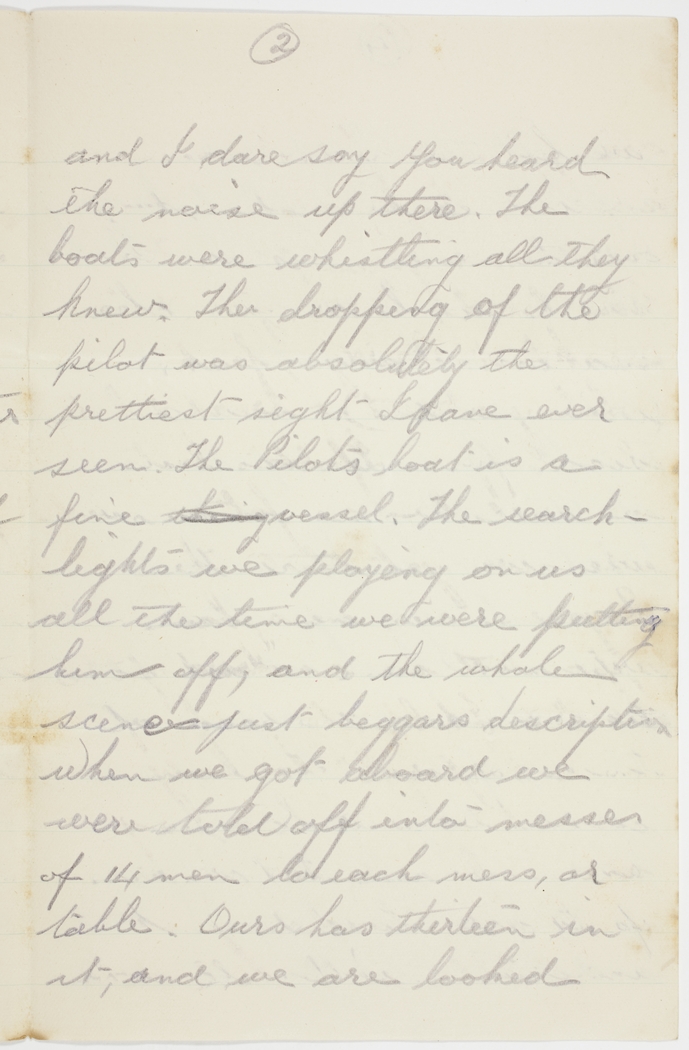 2
and I dare say you heard
the noise up there. The
boats were whistling all they
knew. The dropping of the
pilot was absolutely the
prettiest sight I have ever
seen. The Pilots boat is a
fine thing vessel. The search-
lights we playing on us
all the time we were putting
him off, and the whole
scene just beggars description
When we got aboard we
were told off into messes
of 14 men to each mess, or
table. Ours has thirteen in
it, and we are looked